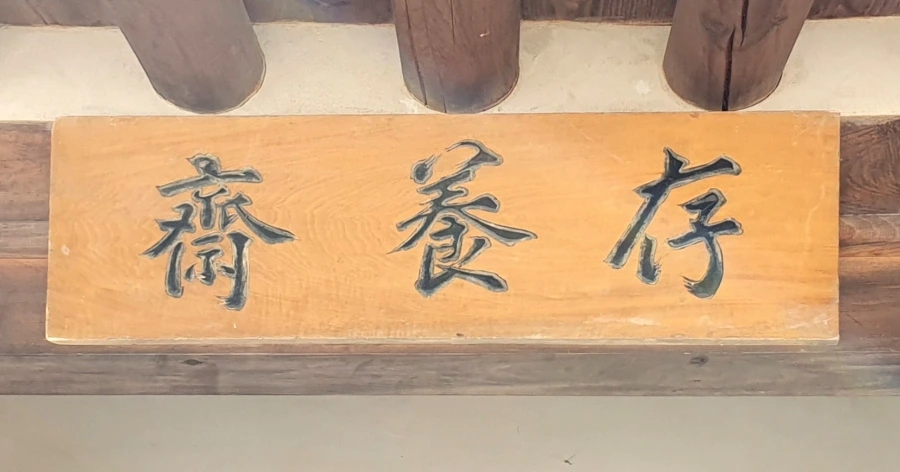 存養齋